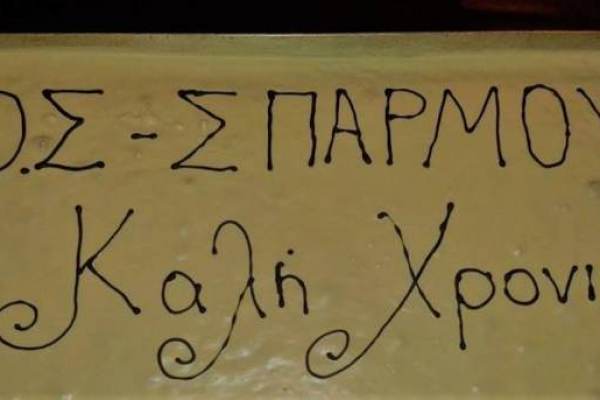 Ο.Σ - ΣΠΑΡΜΟΥ
Καλή Χρονι